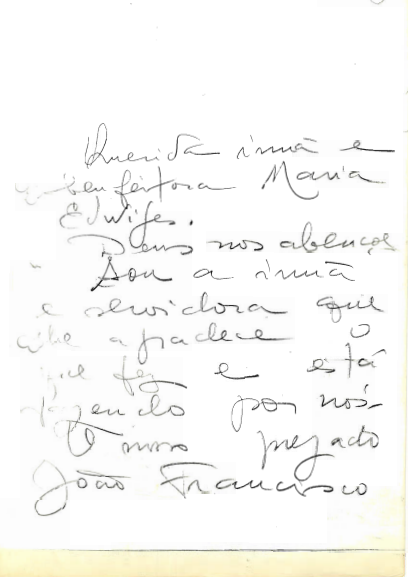 Querida irmã e
benfeitora Maria
Edwiges.
Deus nos abençoe
Sou a irmã
e servidora que
lhe agradece o
que fez e está
fazendo por nós.
O nosso prezado
João Francisco